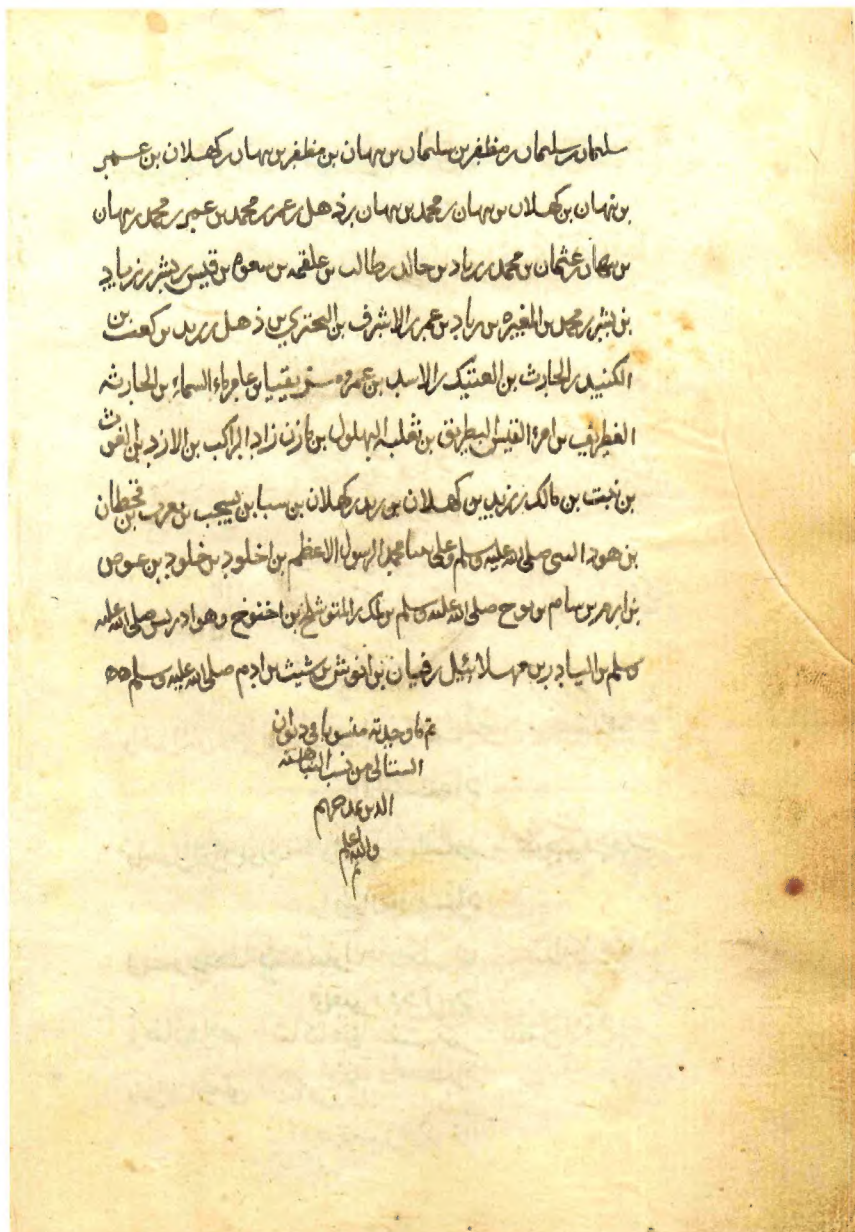 سليمان بن سليمان بن مظفر بن سليمان بن نبهان بن مظفر بن نبهان بن كهلان بن عمر
بن نبهان بن كهلان بن نبهان بن محمد بن نبهان بن ذهل بن عمر بن محمد بن عمر بن محمد بن نبهان
بن نبهان بن عثمان بن محمد بن زياد بن خالد بن طالب بن علقمه بن معوه بن قيس بن بشر بن زياد
بن بشر بن محمد بن المغيره بن زياد بن عمر بن الاشرف بن البختري بن ذهل بن زيد بن كعب بن
بن الحارث بن العتيك بن الاسد بن عمرو بن عامر ماء السماء بن الحارثه
الغطريف بن امرء القيس البطريق بن ثعلبه البهلول بن مازن زاد الراكب بن الازد بن الغوث
بن نبت بن مالك بن زيد بن كهلان بن زيد بن كهلان بن سبا بن يشجب بن يعرب بن قحطان
بن هود النبي صلى الله عليه وسلم وعلى نبينا محمد الرسول الاعظم بن اخلود بن خلود بن عوص
بن ارم بن سام بن نوح صلى الله عليه وسلم بن لمك بن المتوشلخ بن اخنوخ وهو ادريس صلى الله عليه
وسلم بن اليادر بن مهلائيل بن قيان بن انوش بن شيث بن ادم صلى الله عليه وسلم
تم ما وجدته منسوبا في ديوان
الستالي من نسب النباهنه
الذين مدحهم
والله اعلم
تم